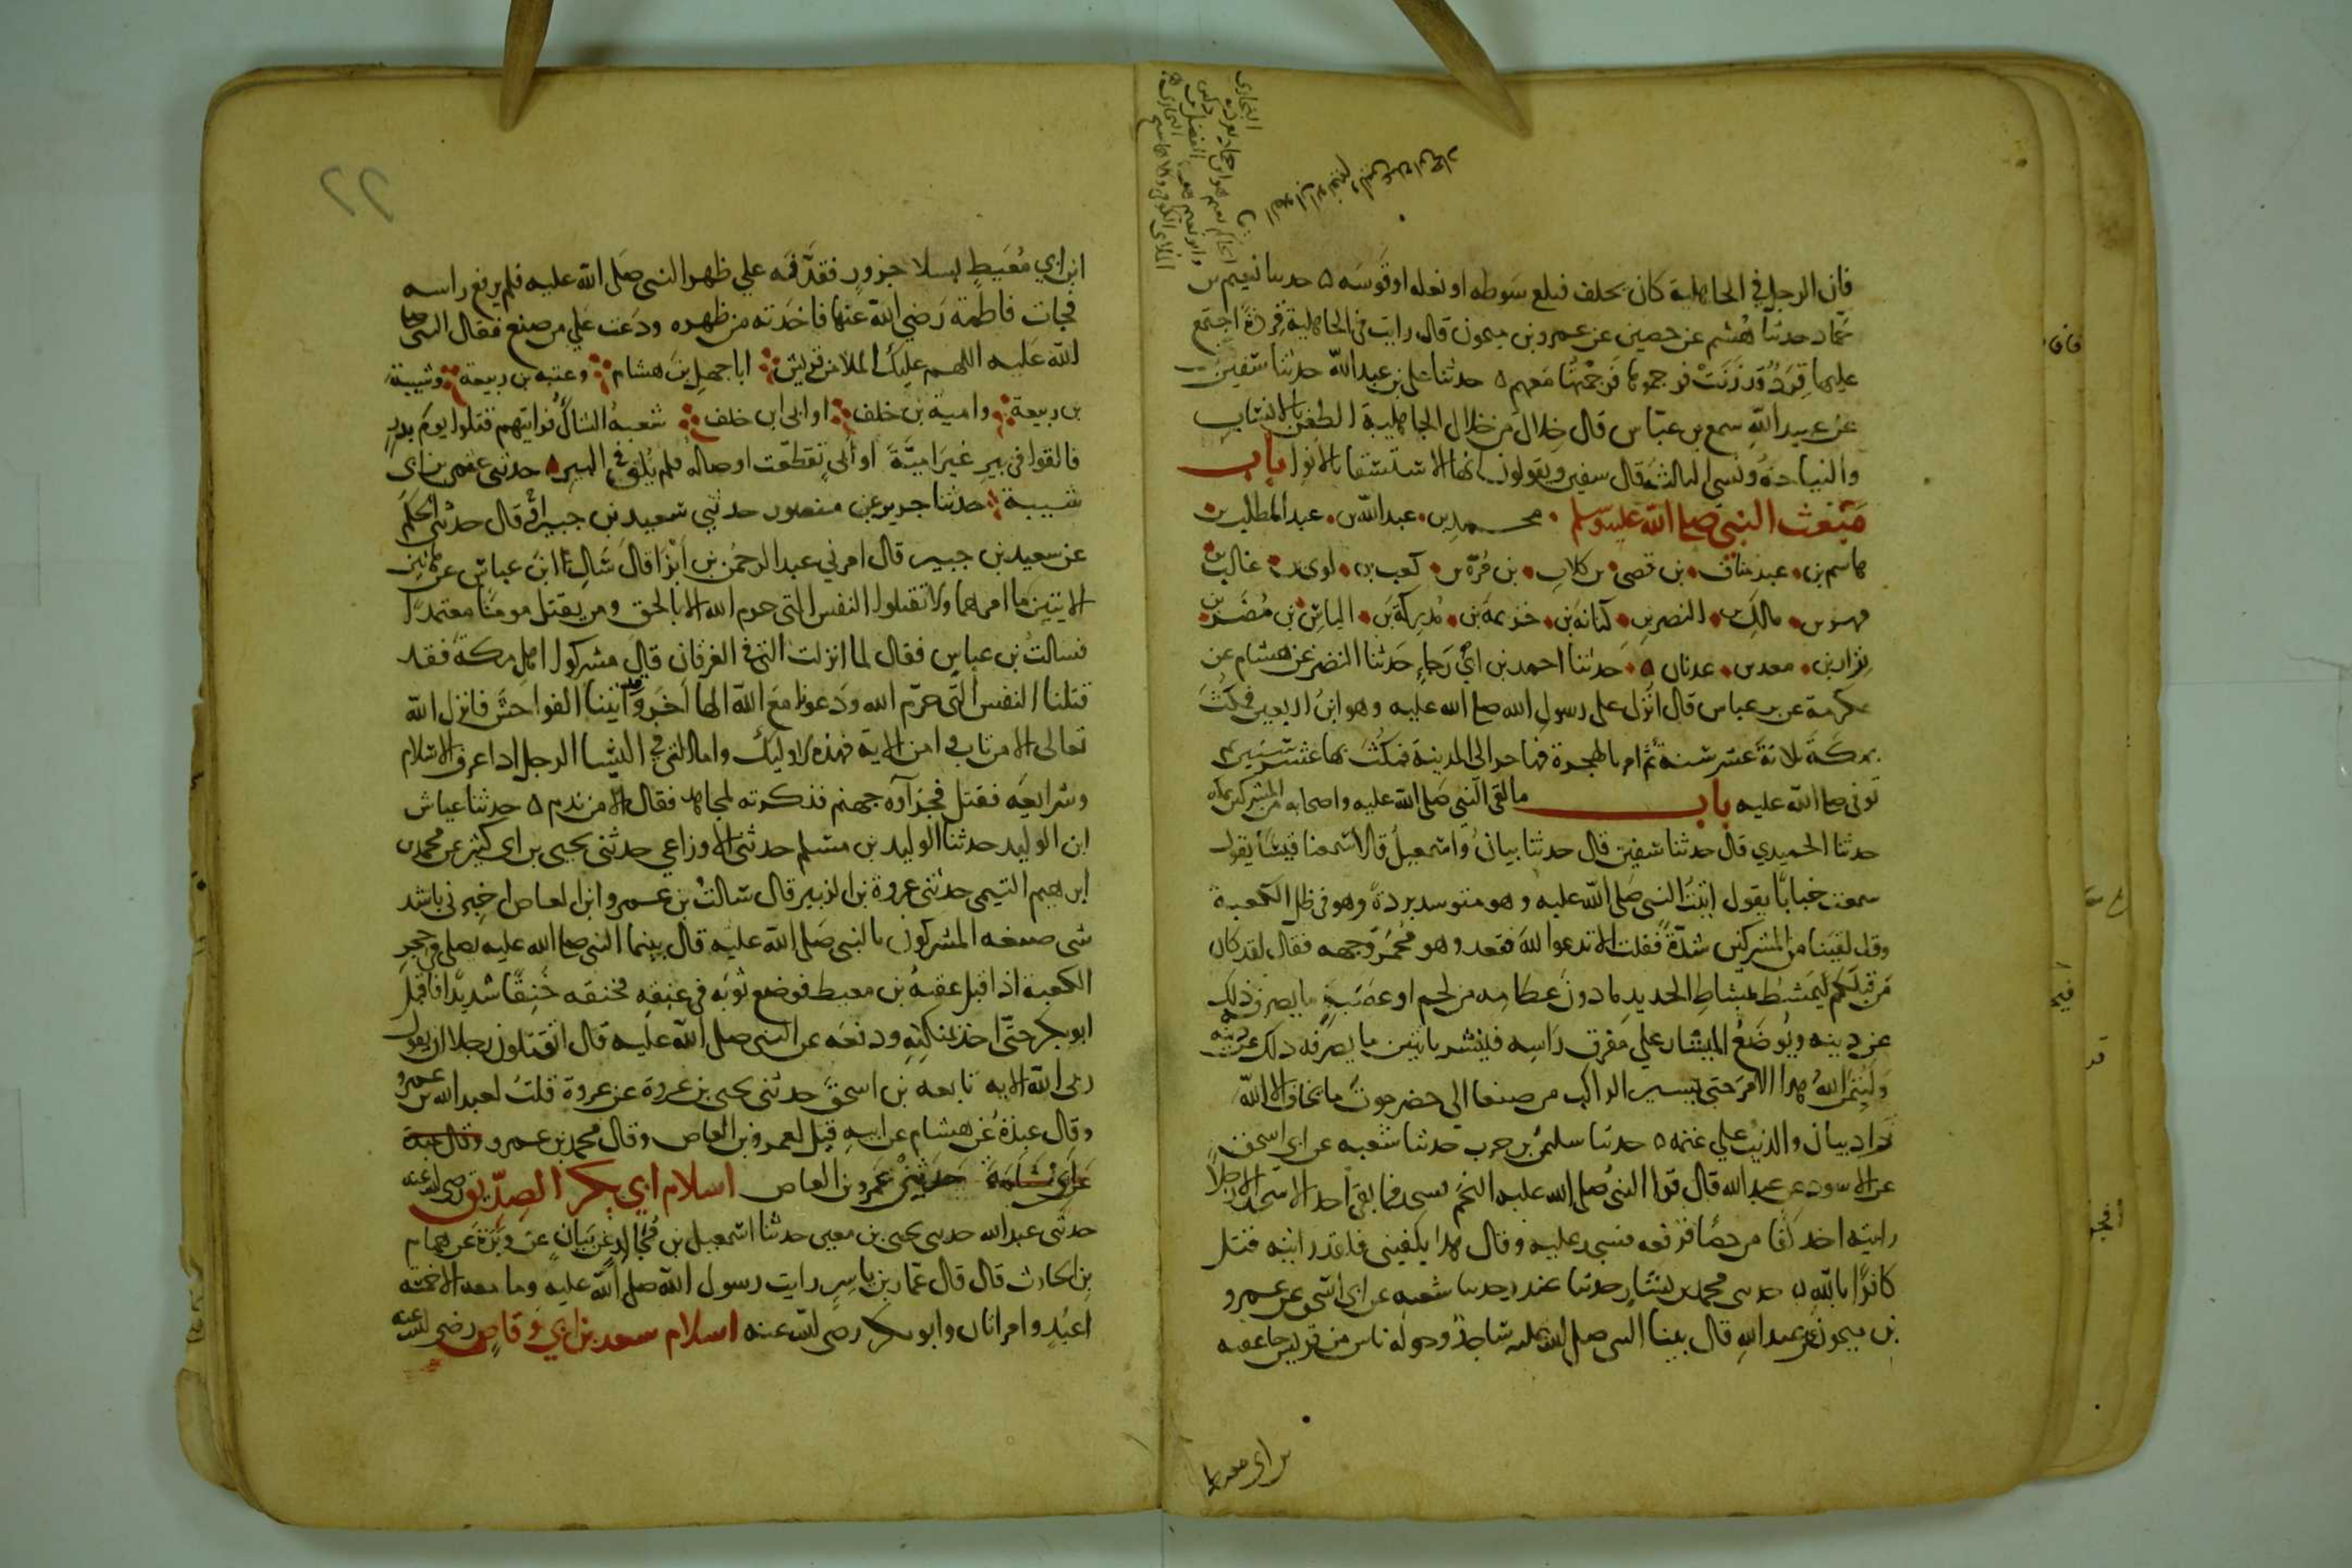 فان الرجل في الجاهلية كان يحلف فيلقي سوطه او نعله او قوسه ه حدثنا نعيم بن
حماد حدثنا هشيم عن حصين عن عمرو بن ميمون قال رايت في الجاهلية قردة اجتمع
عليها قردة قد زنت فرجموها فرجمتها معهم ه حدثنا علي بن عبد الله حدثنا سفين
عن عبيد الله سمع بن عباس قال خلال من خلال الجاهلية الطعن بالانساب
والنياحة ونسي الثالثة قال سفين ويقولون انها الاستسقا بالانوا باب
مبعث النبي صلى الله عليه وسلم محمد بن عبد الله بن عبد المطلب بن
هاشم بن عبد مناف بن قصي بن كلاب بن مرة بن كعب بن لوى بن غالب بن
فهر بن مالك بن النضر بن كنانة بن خزيمة بن مدركة بن الياس بن مضر بن
نزار بن معد بن عدنان ه حدثنا احمد بن ابي رجاء حدثنا النضر عن هشام عن
عكرمة عن بن عباس قال انزل على رسول الله صلى الله عليه وهو ابن اربعين فمكث
بمكة ثلاثة عشر سنة ثم امر بالهجرة فهاجر الى المدينة فمكث بها عشر سنين ثم
توفي صلى الله عليه باب ما لقي النبي صلى الله عليه واصحابه من المشركين بمكة
حدثنا الحميدي قال حدثنا سفين قال حدثنا بيان واسمعيل قالا سمعنا قيسا يقول
سمعت خبابا يقول اتيت النبي صلى الله عليه وهو متوسد بردة وهو في ظل الكعبة
وقد لقينا من المشركين شدة فقلت الا تدعوا الله فقعد وهو محمر وجهه فقال لقد كان
من قبلكم ليمشط بمشاط الحديد ما دون عظامه من لحم او عصب ما يصرفه ذلك
عن دينه ويوضع الميشار على مفرق راسه فيشق باثنين ما يصرفه ذلك عن دينه
وليتمن الله هذا الامر حتى يسير الراكب من صنعا الى حضرموت ما يخاف الا الله
زاد بيان والذيب على غنمه ه حدثنا سليمن بن حرب حدثنا شعبه عن ابي اسحق
عن الاسود عن عبد الله قال قرا النبي صلى الله عليه النجم فسجد فما بقي احد الا سجد الا رجلا
رايته اخذ كفا من حصا فرفعه فسجد عليه وقال هذا يكفيني فلقد رايته قتل
كافرا بالله ه حدثنى محمد بن بشار حدثنا غندر حدثنا شعبه عن ابي اسحق عن عمرو
بن ميمون عن عبد الله قال بينا النبي صلى الله عليه ساجد وحوله ناس من قريش جا عقبه
بن ابي معيط
ابن ابي معيط بسلا جزور فقذفه علي ظهر النبي صلى الله عليه فلم يرفع راسه
فجات فاطمة رضي الله عنها فاخذته من ظهره ودعت على من صنع فقال النبي صلى
الله عليه اللهم عليك الملا من قريش ابا جهل بن هشام وعتبه بن ربيعة وشيبة
بن ربيعة وامية بن خلف او ابي ابن خلف شعبة الشاك فرايتهم قتلوا يوم بدر
فالقوا في بير غير امية او ابي تقطعت اوصاله فلم يلق في البير ه حدثني عثمن بن ابي
شيبة حدثنا جرير عن منصور حدثني سعيد بن جبير او قال حدثني الحكم
عن سعيد بن جبير قال امرني عبد الرحمن بن ابزا قال سال ابن عباس عن هاتين
الايتين ما امرهما ولا تقتلوا النفس التي حرم الله الا بالحق ومن يقتل مومنا متعمدا
فسالت بن عباس فقال لما انزلت التي في الفرقان قال مشركوا اهل مكة فقد
قتلنا النفس التي حرم الله ودعونا مع الله الها اخر وقد اتينا الفواحش فانزل الله
تعالى الا من تاب وامن الاية فهذه لاوليك واما التي في النسا الرجل اذا عرف الاسلام
وشرايعه فقتل فجزآوه جهنم فذكرته لمجاهد فقال الا من ندم ه حدثنا عياش
ابن الوليد حدثنا الوليد بن مسلم حدثني الاوزاعي حدثني يحيى بن ابي كثير عن محمد بن
ابرهيم التيمي حدثني عروة بن الزبير قال سالت بن عمرو ابن العاص اخبرني باشد
شي صنعه المشركون بالنبي صلى الله عليه قال بينما النبي صلى الله عليه يصلي في حجر
الكعبة اذ اقبل عقبة بن معيط فوضع ثوبه في عنقه فخنقه خنقا شديدا فاقبل
ابو بكر حتى اخذ بمنكبه ودفعه عن النبي صلى الله عليه قال اتقتلون رجلا ان يقول
ربي الله الايه تابعه بن اسحق حدثني يحيى بن عروة عن عروة قلت لعبد الله بن عمرو
وقال عبدة عن هشام عن ابيه قيل لعمرو بن العاص وقال محمد بن عمرو
عن ابي سلمة حدثني عمرو بن العاص اسلام ابي بكر الصديق رضي الله عنه
حدثني عبد الله حدثني يحيى بن معين حدثنا اسمعيل بن مجالد عن بيان عن وبرة عن همام
بن الحارث قال قال عمار بن ياسر رايت رسول الله صلى الله عليه وما معه الا خمسة
اعبد وامراتان وابو بكر رضي الله عنه اسلام سعد بن ابي وقاص رضي الله عنه